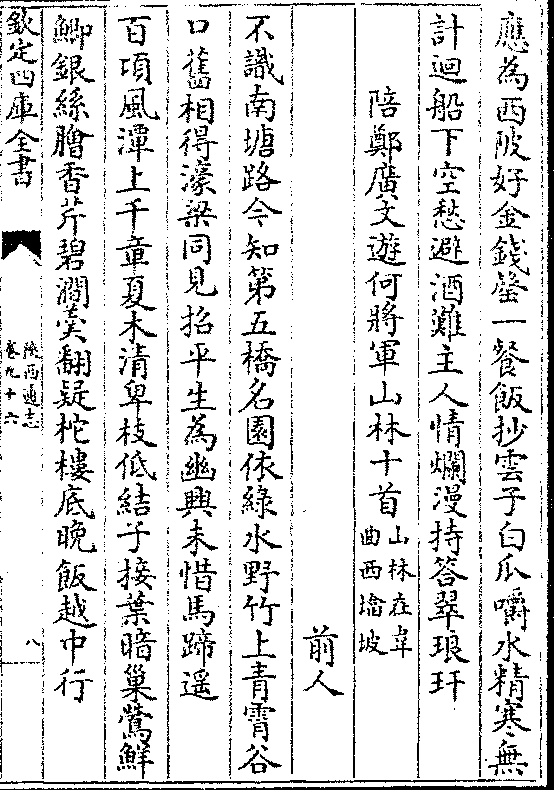 應為西陂好金錢罄一餐飯抄雲子白瓜嚼水精寒無
計迴船下空愁避酒難主人情爛漫持答翠琅玕
陪鄭廣文遊何將軍山林十首山林在韋
曲西塠坡
前人
不識南塘路今知第五橋名園依綠水野竹上青霄谷
口舊相得濠梁同見招平生為幽興未惜馬蹄遥
百頃風潭上千章夏木清卑枝低結子接葉暗巢鶯鮮
鯽銀絲膾香芹碧澗羮翻疑柁樓底晚飯越中行
欽定四庫全書
陜西通志
卷九十六
八